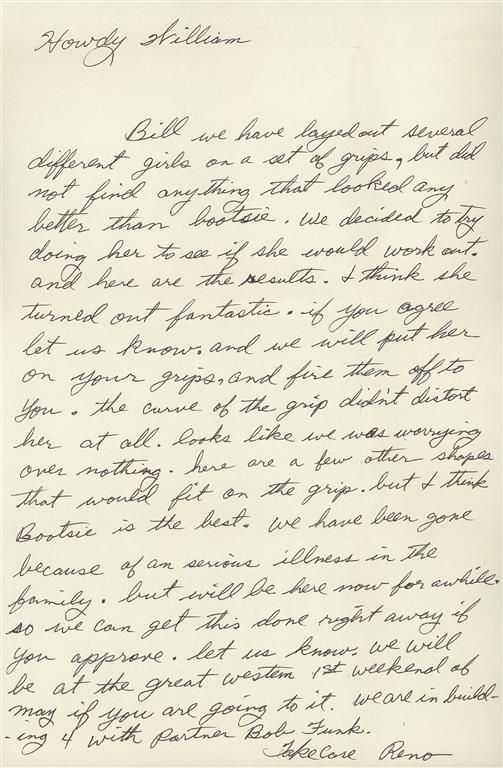 Howdy William
Bill we have layed out several
different girls on a set of grips, but did
not find anything that looked any
better than bootsie. we decided to try
doing her to see if she would work out.
and here are the results. I think she
turned out fantastic. if you agree
let us know. and we will put her
on your grips, and fire them off to
you. the curve of the grip didn't distort
her at all. looks like we was worrying
over nothing. here are a few other shapes
that would fit on the grip. but I think
Bootsie is the best. we have been gone
because of an serious illness in the
family. but will be here now for awhile.
so we can get this done right away if
you approve. let us know. we will
be at the great western 1st weekend of
may if you are going to it. we are in build-
-ing 4 with partner Bob Funk.
Take Care Reno